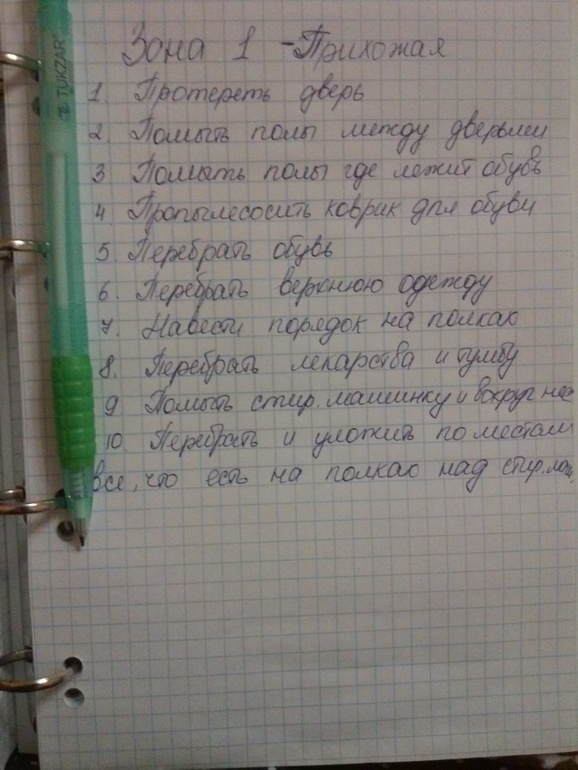 TUKZAR
Зона 1 - Прихожая
1. Протереть дверь
2. Помыть полы между дверьми
3 Помыть полы где лежит обувь
4. Пропылесосить коврик для обуви
5. Перебрать обувь
6. Перебрать верхнюю одежду
7. Навести порядок на полках
8. Перебрать лекарства и тумбу
9 Помыть стир. машинку и вокруг нее
10. Перебрать и уложить по местам
все, что есть на полках над стир. маш.